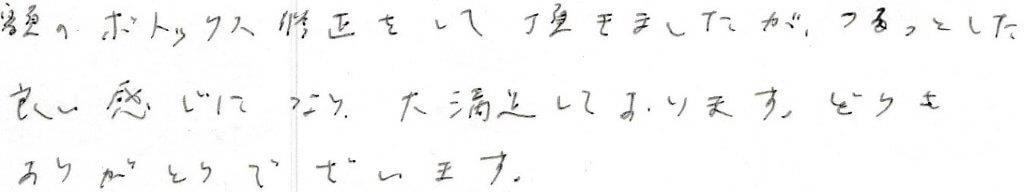 額のボトックス修正をして頂きましたが、つるっとした
良い感じになり、大満足しております。どうも
ありがとうございます。